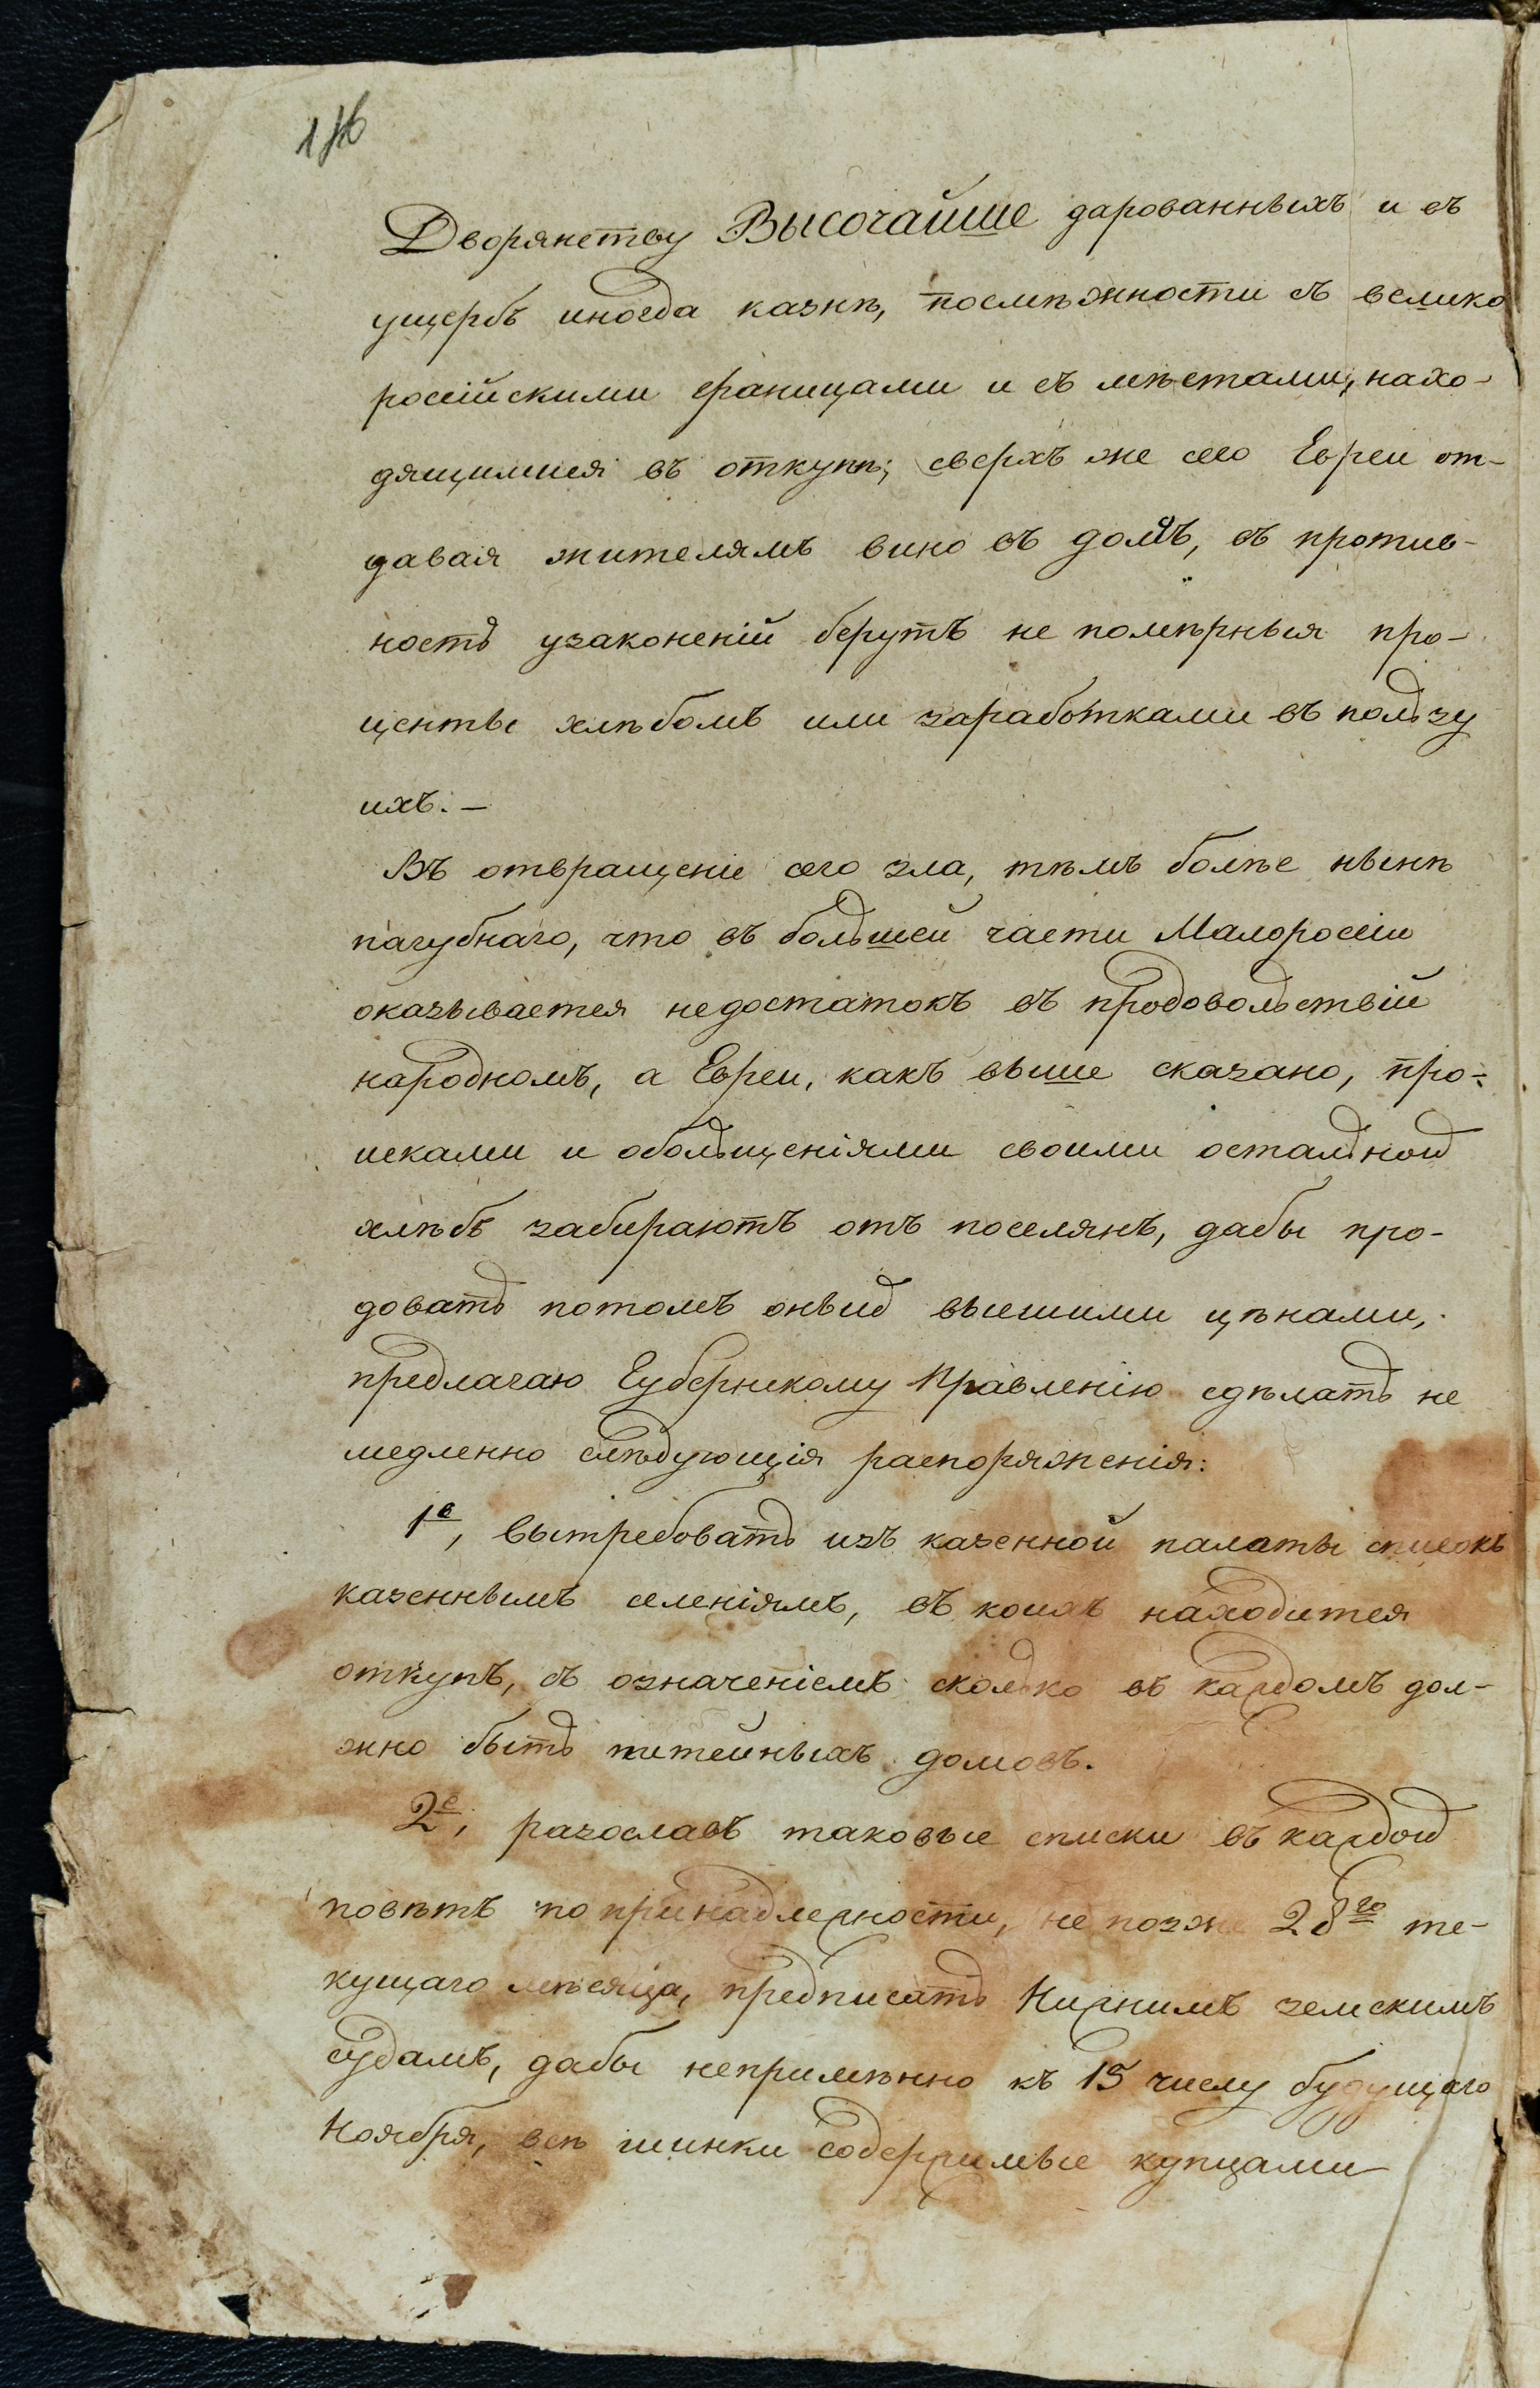 Дворянству Высочайше дарованныхъ и въ
ущербъ иногда казнѣ, посмѣжности съ велико
россійскими границами и съ мѣстами, нахо-
дящимися въ откупѣ; сверхъ же сего Евреи от-
давая жителямъ вино въ долгъ, въ против-
ность узаконеній берутъ не помѣрныя про-
центы хлѣбомъ или заработками въ пользу
ихъ. —
Въ отвращеніе сего зла, тѣмъ болѣе нынѣ
пагубнаго, что въ большей части Малоросіи
оказывается недостатокъ въ продовольствіи
народномъ, а Евреи, какъ выше сказано, про-
исками и обольщеніями своими остальной
хлѣбъ забираютъ отъ поселянъ, дабы про-
довать потомъ оный высшими цѣнами,
предлагаю Губернскому Правленію сдѣлать не
медленно слѣдующія распоряженія:
1е, вытребовать изъ казенной палаты списокъ
казеннымъ селеніямъ, въ коихъ находится
откупъ, съ означеніемъ сколько въ каждомъ дол-
жно быть питейныхъ домовъ.
2е, разославъ таковые списки въ каждой
повѣтъ по принадлежности, не позже 28го те-
кущаго мѣсяца, предписать Нижнимъ земскимъ
судамъ, дабы непримѣнно къ 15 числу будущаго
Ноября, всѣ шинки содержимые купцами